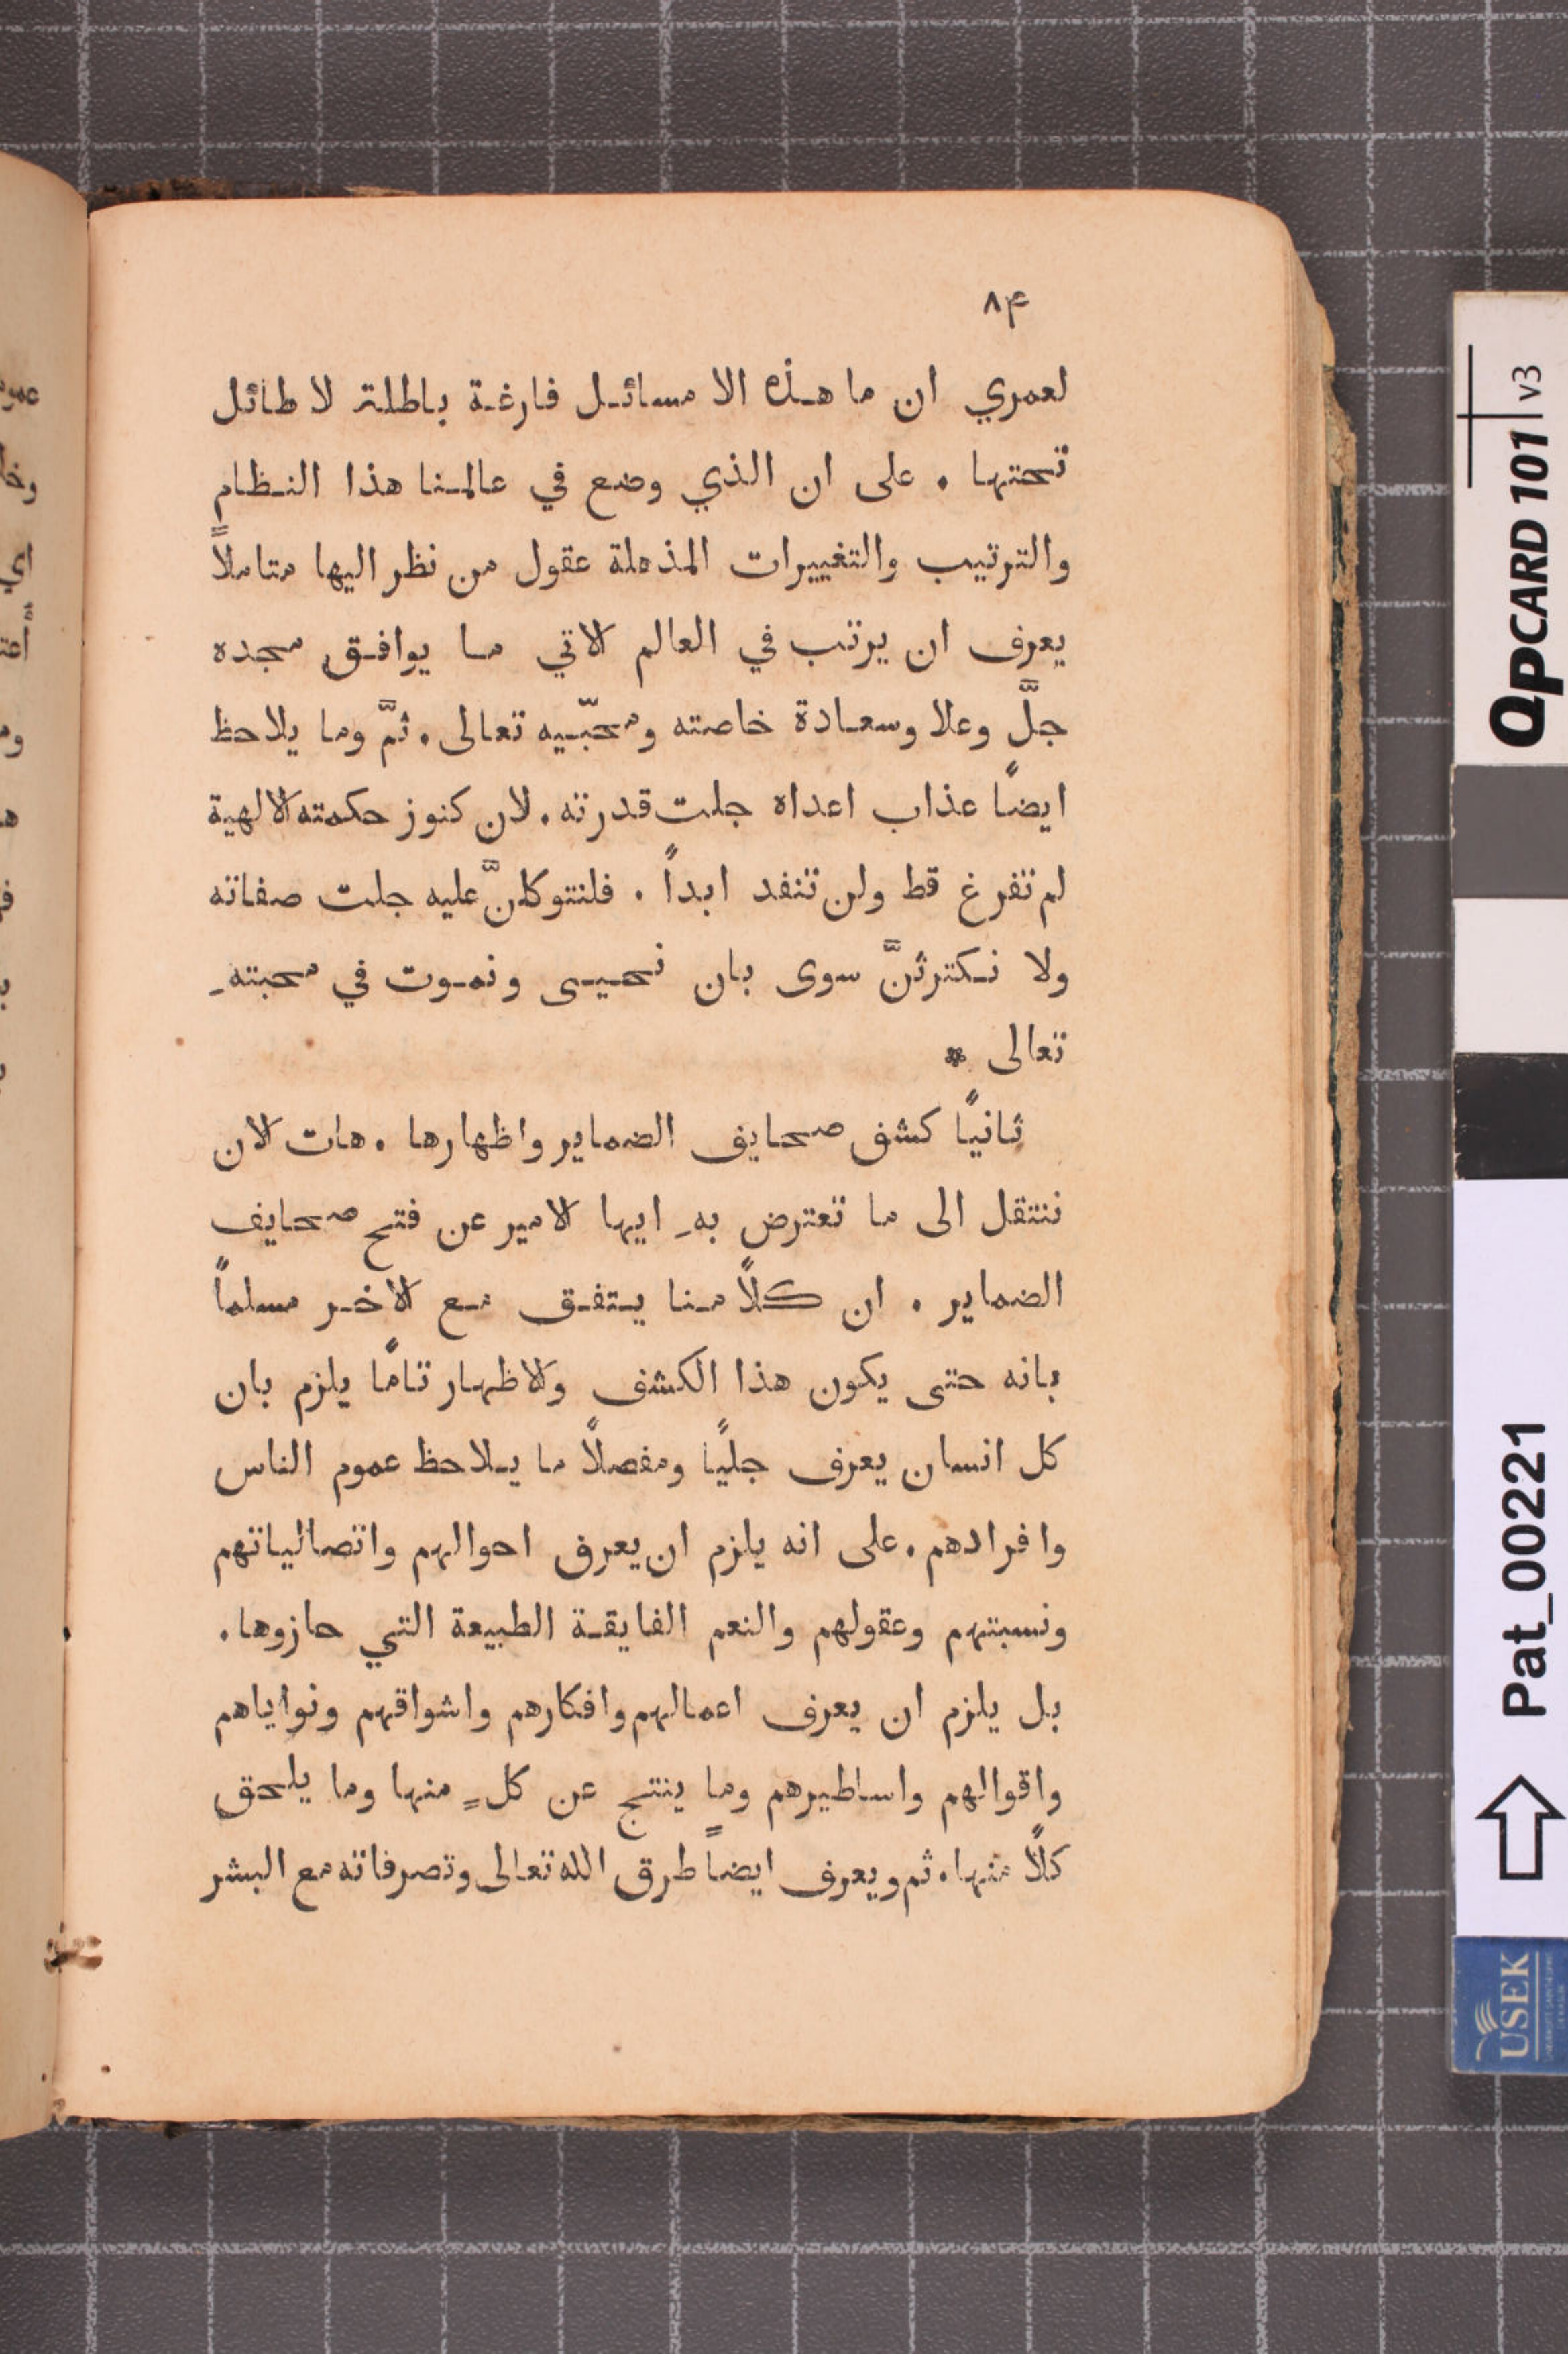 ٨۴
لعمري ان ما هذه الا مسائل فارغة باطلة لا طائل
تحتها . على ان الذي وضع في عالمنا هذا النظام
والترتيب والتغييرات المذهلة عقول من نظر اليها متاملاً
يعرف ان يرتب في العالم الاتي ما يوافق مجده
جلَّ وعلا وسعادة خاصته ومحبّيه تعالى . ثمَّ وما يلاحظ
ايضاً عذاب اعداه جلت قدرته . لان كنوز حكمته الالهية
لم تفرغ قط ولن تنفد ابداً . فلنتوكلنَّ عليه جلت صفاته
ولا نكترثنَّ سوى بان نحيى ونموت في محبتهِ
تعالى *
ثانيًا كشف صحايف الضماير واظهارها . هات الان
ننتقل الى ما تعترض بهِ ايها الامير عن فتح صحايف
الضماير . ان كلاً منا يتفق مع الاخر مسلماً
بانه حتى يكون هذا الكشف والاظهار تامًا يلزم بان
كل انسان يعرف جليًا ومفصلاً ما يلاحظ عموم الناس
وافرادهم . على انه يلزم ان يعرف احوالهم واتصالياتهم
ونسبتهم وعقولهم والنعم الفايقة الطبيعة التي حازوها .
بل يلزم ان يعرف اعمالهم وافكارهم واشواقهم ونواياهم
واقوالهم واساطيرهم وما ينتج عن كلٍ منها وما يلحق
كلاً منها . ثم ويعرف ايضاً طرق الله تعالى وتصرفاته مع البشر
QPCARD 101 v3
Pat_00221
USEK